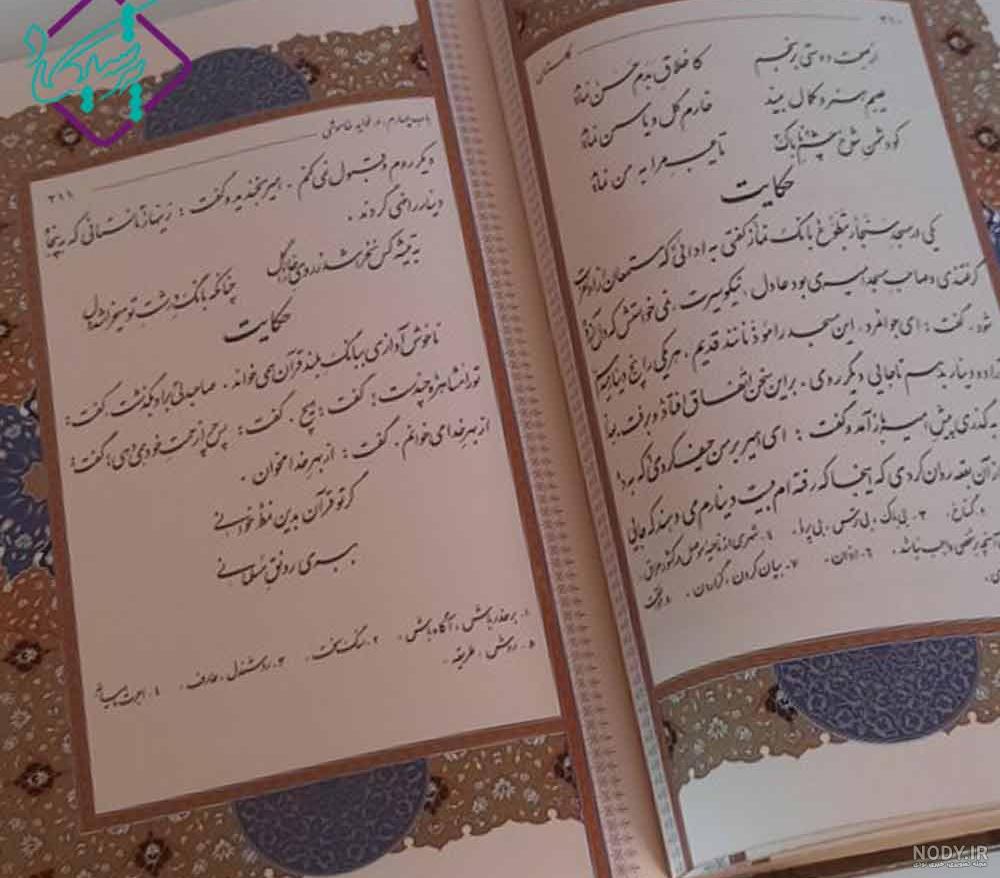 ۳۱۰
گلستان
از صحبت دوستی برنجم
کاخلاق بدم حسن نماید
عیبم هنر و کمال بیند
خارم گل و یاسمن نماید
کو دشمن شوخ چشم ناپاک
تا عیب مرا به من نماید
حکایت
یکی در مسجد سنجار بتطوّع بانگ نماز گفتی به ادائی که مستمعان را از او نفرت
گرفتندی و صاحب مسجد امیری بود عادل، نیکوسیرت، نمی خواستش که دل آزرده
شود. گفت: ای جوانمرد، این مسجد را مؤذنانند قدیم، هریکی را پنج دینار
را ده دینار بدهم تا جایی دیگر روی. بر این سخن اتفاق افتاد و برفت. بعد
به گذری پیش امیر باز آمد و گفت: ای امیر بر من حیف کردی که به ده
از آن بقعه روان کردی که اینجا که رفته ام بیست دینارم می دهند که جای
گستاخ. ۳. بی باک، بی ترس، بی پروا. ٤. شهری از ناحیه موصل در کشور عراق.
واجب نباشد. ٦. اذان. ۷. بیان کردن، گزاردن. ۸.
باب چهارم، در فواید خاموشی
۳۱۱
دیگر روم و قبول نمی کنم. امیر بخندید و گفت: زینهار تا نستانی که به پنجاه
دینار راضی گردند.
به تیشه کس نخراشد ز روی خارا گل
چنانکه بانگ درشت تو میخراشد دل
حکایت
ناخوش آوازی ببانگ بلند قرآن همی خواند. صاحبدلی بر او بگذشت، گفت:
تو را مشاهره چندست؟ گفت: هیچ. گفت: پس چرا زحمت خود همی دهی؟ گفت:
از بهر خدا می خوانم. گفت: از بهر خدا مخوان.
گر تو قرآن بدین نمط خوانی
ببری رونق مسلمانی
۱. برحذر باش، آگاه باش. ۲. سنگ سخت. ۳. روشندل، عارف. ٤. اجرت ماهیانه
۵. روش، طریقه.
NODY.IR